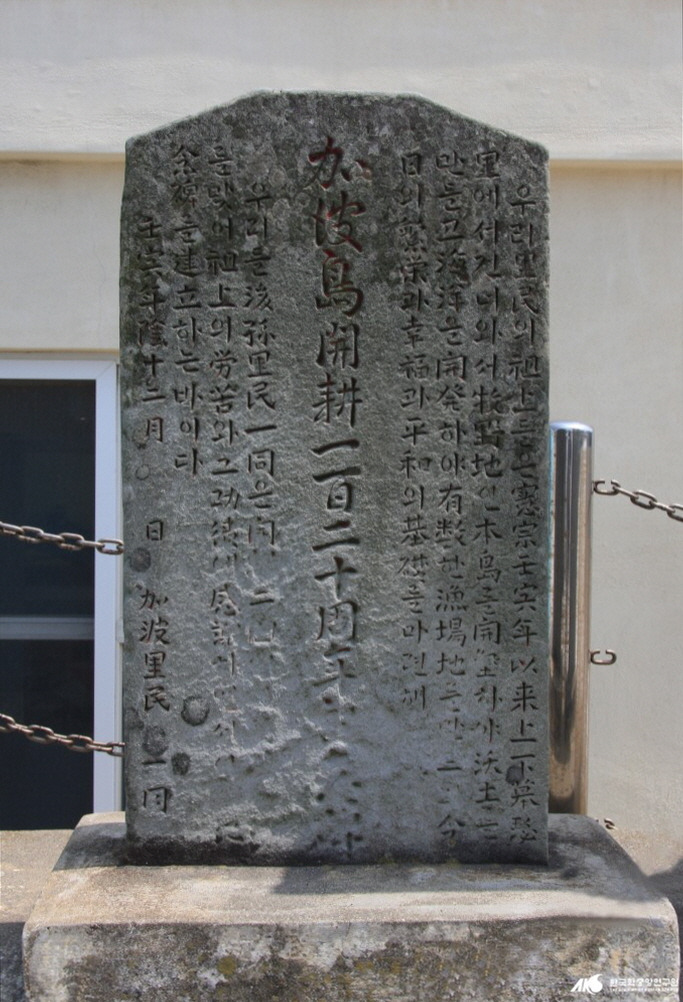 우리里民의 祖上들은 憲宗壬寅年以来上下摹瑟
里에서건너와서 牧野地인本島를開墾하야沃土를
만들고海洋을開発하야有数한漁場地를만
日의繁栄과幸福과平和의基礎를마련해
加波島開耕一百二十周年
우리들該孫里民一同은開
를맞어祖上의労苦와그功績에感謝
念碑를建立하는바이다
壬寅年陰十二月 日 加波里民一同
한국학중앙연구원